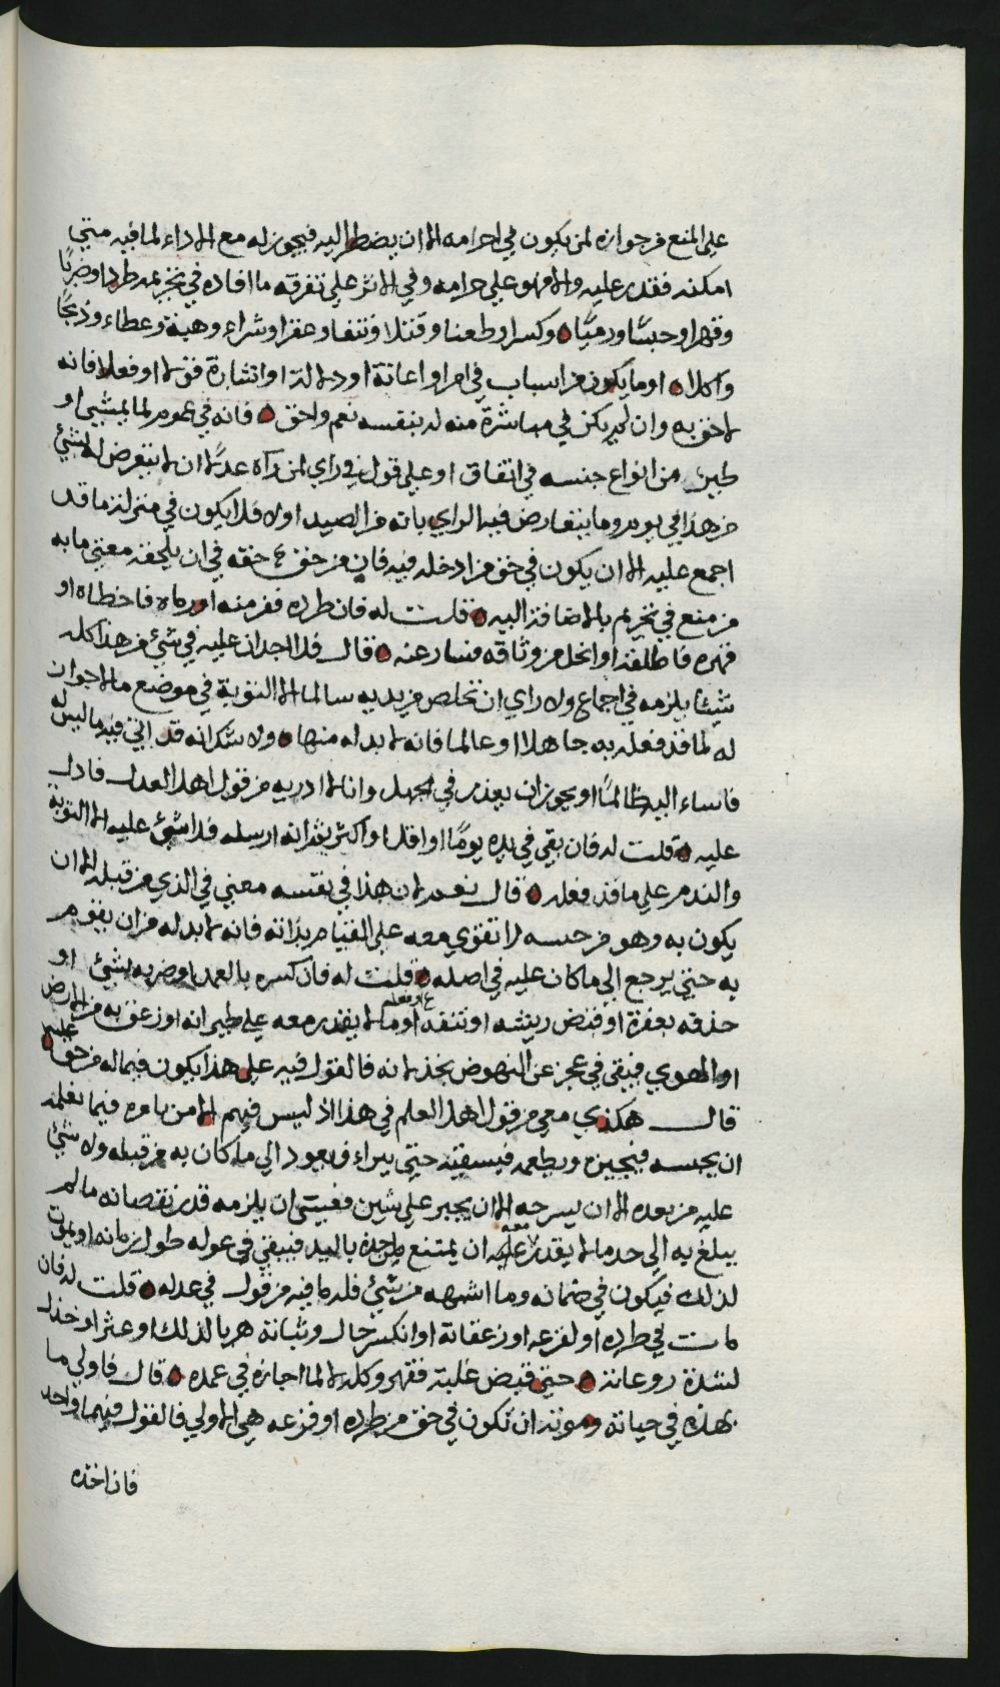 على المنع من جوازه لمن يكون في احرامه الا ان يضطر اليه فيجوز له مع الاداء لما فيه متى
امكنه فقدر عليه والا فهو على حرامه وفي الاثر على تفرقه ما افاده في تحريمه طردا وضربًا
وقهرا وحبسًا ورميًا وكسرا وطعنا وقتلا ونتفا وعقرا وشراء وهبة وعطاء وذبحًا
واكلا او ما يكون من اسباب في امر او اعانة او دلالة او اشارة قولا او فعلا فانه
لاحق به وان لم يكن في مباشرة منه له بنفسه نعم ولاحق فانه في عموم لما يمشي او
طير من انواع جنسه في اتفاق او على قول في راي لمن رآه عدلا ان لا يتعرض له بشئ
من هذا في يومه وما يتعارض فيه الراي بانه من الصيد اولا فلا يكون في منزلة ما قد
اجمع عليه الا ان يكون في حق من ادخله فيه فان من حق حقه في ان يلحقه معنى ما به
من منع في تحريم بالاضافة اليه قلت له فان طرده ففر منه او رماه فاخطاه او
قهره فاطلقه او انحل من وثاقه فسار عنه قال فلا اجد ان عليه في شئ من هذا كله
شيئا يلزمه في اجماع ولا راي ان تخلص من يديه سالما الا التوبة في موضع ما لا جواز
له لما قد فعله به جاهلا او عالما فانه لا بد له منها ولا شك انه قد اتى فيه ما ليس له
فاساء اليه ظالمًا او يجوز ان يعذر في الجهل وانا لا ادريه من قول اهل العدل فادل
عليه قلت له فان بقي في يده يومًا او اقل او اكثر ثم انه ارسله فلا شئ عليه الا التوبة
والندم على ما قد فعله قال نعم لان هذا في نفسه معنى في الذي من قبله الا ان
يكون به وهو من حبسه لا تقوى معه على القيام بذاته فانه لا بد له من ان يقوم
به حتى يرجع الى ما كان عليه في اصله قلت له فان كسره بالعمد او ضربه بشئ او
حذفه بعفرة او قبض ريشه او نتفه او ما لا يقدر معه على طيرانه او زعق به من الارض
او الهوى فبقي في عجز عن النهوض بخذلانه فالقول فيه على هذا يكون فيما له من حق عليه
قال هكذى معي من قول اهل العلم في هذا اذ ليس فيهم الا من يامره فيما نعلمه
ان يحبسه فيجيره ويطعمه فيسقيه حتى يبراء ويعود الى ما كان به من قبله ولا شئ
عليه من بعده الا ان يسرحه الا ان يجبر على شين فعسى ان يلزمه قدر نقصانه ما لم
يبلغ به الى حد ما لا يقدر معه ان يمتنع من اخذه باليد فيبقى في عوله طول زمانه او يموت
لذلك فيكون في ضمانه وما اشبهه من شئ فله ما فيه من قول في عدله قلت له فان
مات في طرده او لفزعه او زعقاته او انكسر حال وثباته هربا لذلك او عثر او خذل
لشدة روعاته حتى قبض غلبة فقهر وكله لا لما اجازه في عمده قال فاولى ما
بهذه في حياته وموته ان تكون في حق من طرده او فزعه هي الاولى فالقول فيهما واحد
فان اخذه